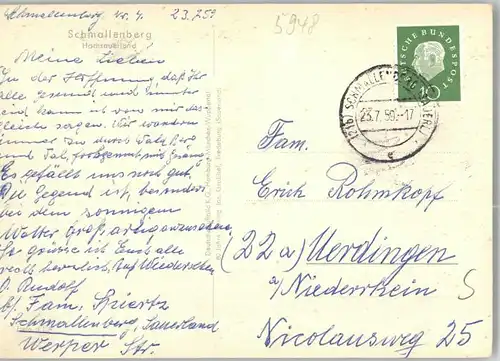 Schmallenberg 23.7.59
5948
Schmallenberg
Hochsauerland
Meine Lieben
In der Hoffnung, daß Ihr
alle gesund und munter
seid kann ich von mir das
gleiche sagen. Wir wandern
immer zu durch Tal, Berg
und Tal,
Es gefällt uns noch gut.
Die Gegend ist besonders
bei dem sonnigen
Wetter Großartig anzusehen
So grüsse ich Euch alle
recht herzlich, Auf Wiedersehen
O. Rudolf
b/ Fam. Spiertz
Schmallenberg, Sauerland
Werper Str.
DEUTSCHE BUNDESPOST
10
(21b) SCHMALLENBERG
23.7.59.-17
c
Fam.
Erich Rohmkopf
(22a) Uerdingen
a/ Niederrhein
Nicolausweg 25
S